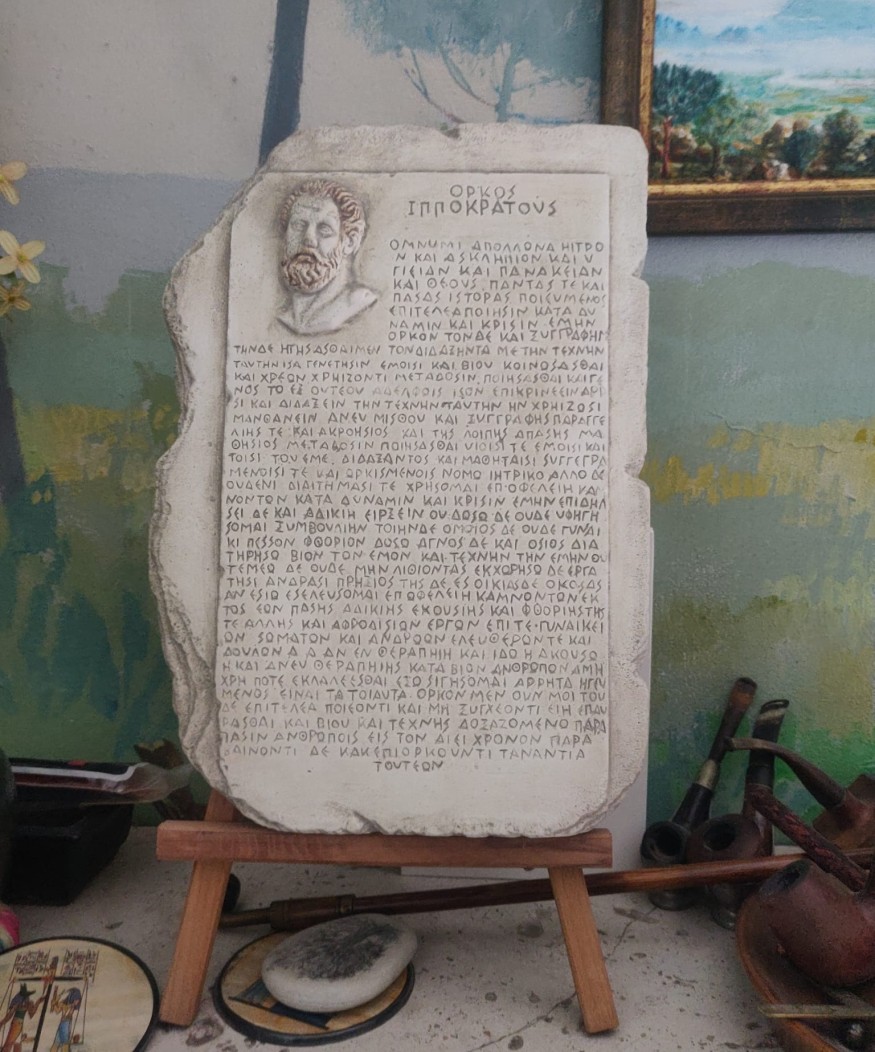 ΟΡΚΟΣ
ΙΠΠΟΚΡΑΤΟΥΣ
ΟΜΝΥΜΙ ΑΠΟΛΛΩΝΑ ΗΙΤΡΟ
Ν ΚΑΙ ΑΣΚΛΗΠΙΟΝ ΚΑΙ Υ
ΓΙΕΙΑΝ ΚΑΙ ΠΑΝΑΚΕΙΑΝ
ΚΑΙ ΘΕΟΥΣ, ΠΑΝΤΑΣ ΤΕ ΚΑΙ
ΠΑΣΑΣ ΙΣΤΟΡΑΣ ΠΟΙΕΥΜΕΝΟΣ
ΕΠΙΤΕΛΕΑ ΠΟΙΗΣΙΝ ΚΑΤΑ ΔΥ
ΝΑΜΙΝ ΚΑΙ ΚΡΙΣΙΝ ΕΜΗΝ
ΟΡΚΟΝ ΤΟΝΔΕ ΚΑΙ ΞΥΓΓΡΑΦΗΝ
ΤΗΝΔΕ ΗΓΗΣΑΣΘΑΙ ΜΕΝ ΤΟΝ ΔΙΔΑΞΗΝΤΑ ΜΕ ΤΗΝ ΤΕΧΝΗΝ
ΤΑΥΤΗΝ ΙΣΑ ΓΕΝΕΤΗΣΙΝ ΕΜΟΙΣΙ ΚΑΙ ΒΙΟΥ ΚΟΙΝΩΣΑΣΘΑΙ
ΚΑΙ ΧΡΕΩΝ ΧΡΗΙΖΟΝΤΙ ΜΕΤΑΔΟΣΙΝ, ΠΟΙΗΣΑΣΘΑΙ ΚΑΙ ΓΕ
ΝΟΣ ΤΟ ΕΞ ΟΥΤΕΟΥ ΑΔΕΛΦΟΙΣ ΙΣΟΝ ΕΠΙΚΡΙΝΕΕΙΝ ΑΡΙ
ΣΙ ΚΑΙ ΔΙΔΑΞΕΙΝ ΤΗΝ ΤΕΧΝΗΝ ΤΑΥΤΗΝ ΗΝ ΧΡΗΙΖΩΣΙ
ΜΑΝΘΑΝΕΙΝ ΑΝΕΥ ΜΙΣΘΟΥ ΚΑΙ ΞΥΓΓΡΑΦΗΣ ΠΑΡΑΓΓΕ
ΛΙΗΣ ΤΕ ΚΑΙ ΑΚΡΟΗΣΙΟΣ ΚΑΙ ΤΗΣ ΛΟΙΠΗΣ ΑΠΑΣΗΣ ΜΑ
ΘΗΣΙΟΣ ΜΕΤΑΔΟΣΙΝ ΠΟΙΗΣΑΣΘΑΙ ΥΙΟΙΣΙ ΤΕ ΕΜΟΙΣΙ ΚΑΙ
ΤΟΙΣΙ ΤΟΥ ΕΜΕ, ΔΙΔΑΞΑΝΤΟΣ ΚΑΙ ΜΑΘΗΤΑΙΣΙ ΣΥΓΓΕΓΡΑ
ΜΕΝΟΙΣΙ ΤΕ ΚΑΙ ΩΡΚΙΣΜΕΝΟΙΣ ΝΟΜΩ ΙΗΤΡΙΚΩ ΑΛΛΟ ΔΕ
ΟΥΔΕΝΙ ΔΙΑΙΤΗΜΑΣΙ ΤΕ ΧΡΗΣΟΜΑΙ ΕΠ ΩΦΕΛΕΙΗ ΚΑΜ
ΝΟΝΤΩΝ ΚΑΤΑ ΔΥΝΑΜΙΝ ΚΑΙ ΚΡΙΣΙΝ ΕΜΗΝ ΕΠΙ ΔΗΛ
ΣΕΙ ΔΕ ΚΑΙ ΑΔΙΚΙΗ ΕΙΡΞΕΙΝ ΟΥ ΔΩΣΩ ΔΕ ΟΥΔΕ ΥΦΗΓΗ
ΣΟΜΑΙ ΞΥΜΒΟΥΛΙΗΝ ΤΟΙΗΝΔΕ ΟΜΟΙΟΣ ΔΕ ΟΥΔΕ ΓΥΝΑΙ
ΚΙ ΠΕΣΣΟΝ ΦΘΟΡΙΟΝ ΔΩΣΩ ΑΓΝΩΣ ΔΕ ΚΑΙ ΟΣΙΩΣ ΔΙΑ
ΤΗΡΗΣΩ ΒΙΟΝ ΤΟΝ ΕΜΟΝ ΚΑΙ ΤΕΧΝΗΝ ΤΗΝ ΕΜΗΝ ΟΥ
ΤΕΜΕΩ ΔΕ ΟΥΔΕ ΜΗΝ ΛΙΘΙΩΝΤΑΣ ΕΚΧΩΡΗΣΩ ΔΕ ΕΡΓΑ
ΤΗΣΙ ΑΝΔΡΑΣΙ ΠΡΗΞΙΟΣ ΤΗΣ ΔΕ, ΕΣ ΟΙΚΙΑΣ ΔΕ ΟΚΟΣΑΣ
ΑΝ ΕΣΙΩ ΕΣΕΛΕΥΣΟΜΑΙ ΕΠ ΩΦΕΛΕΙΗ ΚΑΜΝΟΝΤΩΝ ΕΚ
ΤΟΣ ΕΩΝ ΠΑΣΗΣ ΑΔΙΚΙΗΣ ΕΚΟΥΣΙΗΣ ΚΑΙ ΦΘΟΡΙΗΣ ΤΗΣ
ΤΕ ΑΛΛΗΣ ΚΑΙ ΑΦΡΟΔΙΣΙΩΝ ΕΡΓΩΝ ΕΠΙ ΤΕ ΓΥΝΑΙΚΕΙ
ΩΝ ΣΩΜΑΤΩΝ ΚΑΙ ΑΝΔΡΩΩΝ ΕΛΕΥΘΕΡΩΝ ΤΕ ΚΑΙ
ΔΟΥΛΩΝ Α Δ ΑΝ ΕΝ ΘΕΡΑΠΗΙΗ ΚΑΙ ΙΔΩ Η ΑΚΟΥΣΩ
Η ΚΑΙ ΑΝΕΥ ΘΕΡΑΠΗΙΗΣ ΚΑΤΑ ΒΙΟΝ ΑΝΘΡΩΠΩΝ Α ΜΗ
ΧΡΗ ΠΟΤΕ ΕΚΛΑΛΕΕΣΘΑΙ ΕΞΩ ΣΙΓΗΣΟΜΑΙ ΑΡΡΗΤΑ ΗΓΕΥ
ΜΕΝΟΣ ΕΙΝΑΙ ΤΑ ΤΟΙΑΥΤΑ. ΟΡΚΟΝ ΜΕΝ ΟΥΝ ΜΟΙ ΤΟΥ
ΔΕ ΕΠΙΤΕΛΕΑ ΠΟΙΕΟΝΤΙ ΚΑΙ ΜΗ ΞΥΓΧΕΟΝΤΙ ΕΙΗ ΕΠΑΥ
ΡΑΣΘΑΙ ΚΑΙ ΒΙΟΥ ΚΑΙ ΤΕΧΝΗΣ ΔΟΞΑΖΟΜΕΝΟ ΠΑΡΑ
ΠΑΣΙΝ ΑΝΘΡΩΠΟΙΣ ΕΙΣ ΤΟΝ ΑΙΕΙ ΧΡΟΝΟΝ ΠΑΡΑ
ΒΑΙΝΟΝΤΙ ΔΕ ΚΑΚΕΠΙΟΡΚΟΥΝΤΙ ΤΑΝΑΝΤΙΑ
ΤΟΥΤΕΩΝ